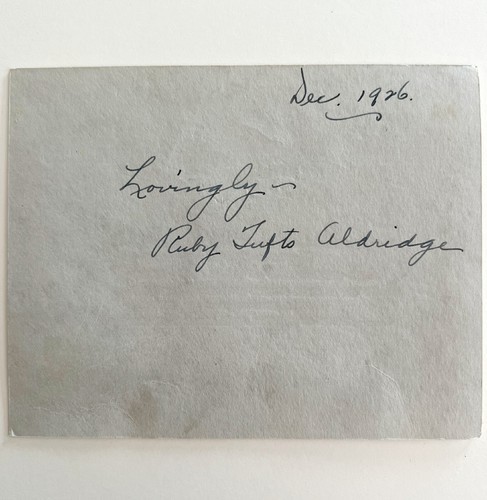 Dec. 1926.
Lovingly –
Ruby Tufts Aldridge